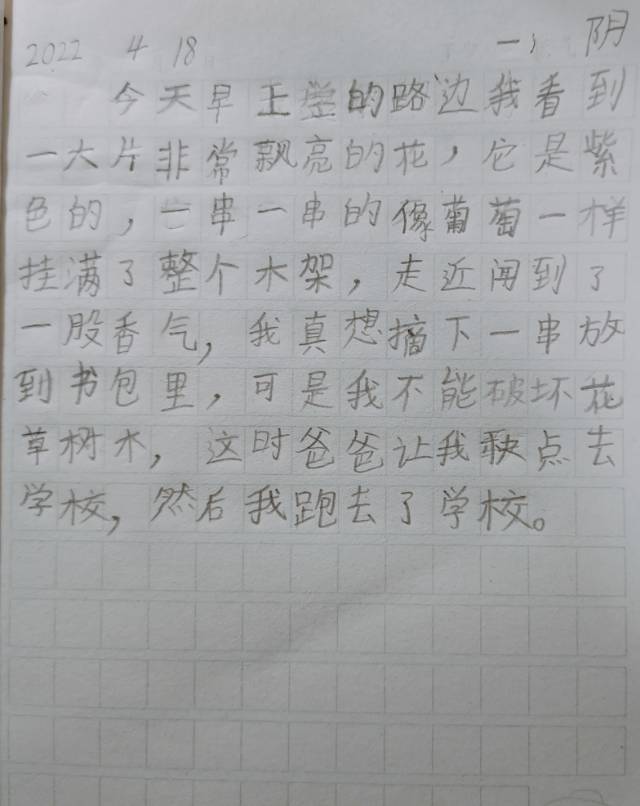 2022 4 18 一, 阴
今天早上学的路边我看到
一大片非常飘亮的花，它是紫
色的，一串一串的像葡萄一样
挂满了整个木架，走近闻到了
一股香气，我真想摘下一串放
到书包里，可是我不能破坏花
草树木，这时爸爸让我快点去
学校，然后我跑去了学校。